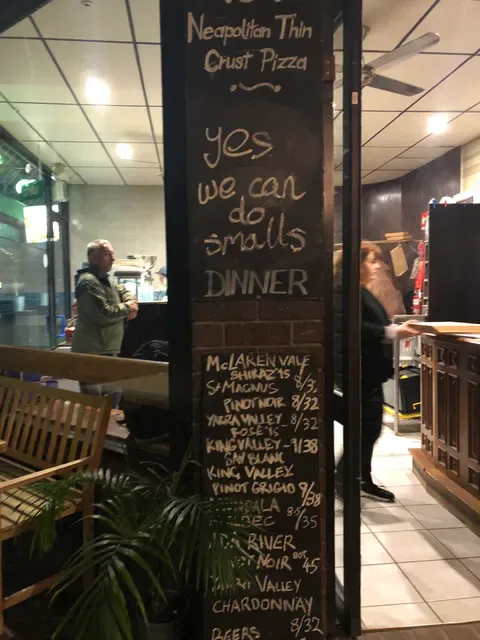 Neapolitan Thin
Crust Pizza
yes
we can
do
smalls
DINNER
McLAREN VALE
SHIRAZ '15 8/3
St MAGNUS
PINOT NOIR 8/32
YARRA VALLEY 8/32
ROSE 15
KING VALLEY - 9/38
SAV BLANC
KING VALLEY
PINOT GRIGIO 9/38
/35
RIVER
NOIR BOT 45
VALLEY
CHARDONNAY
8/32
BEERS